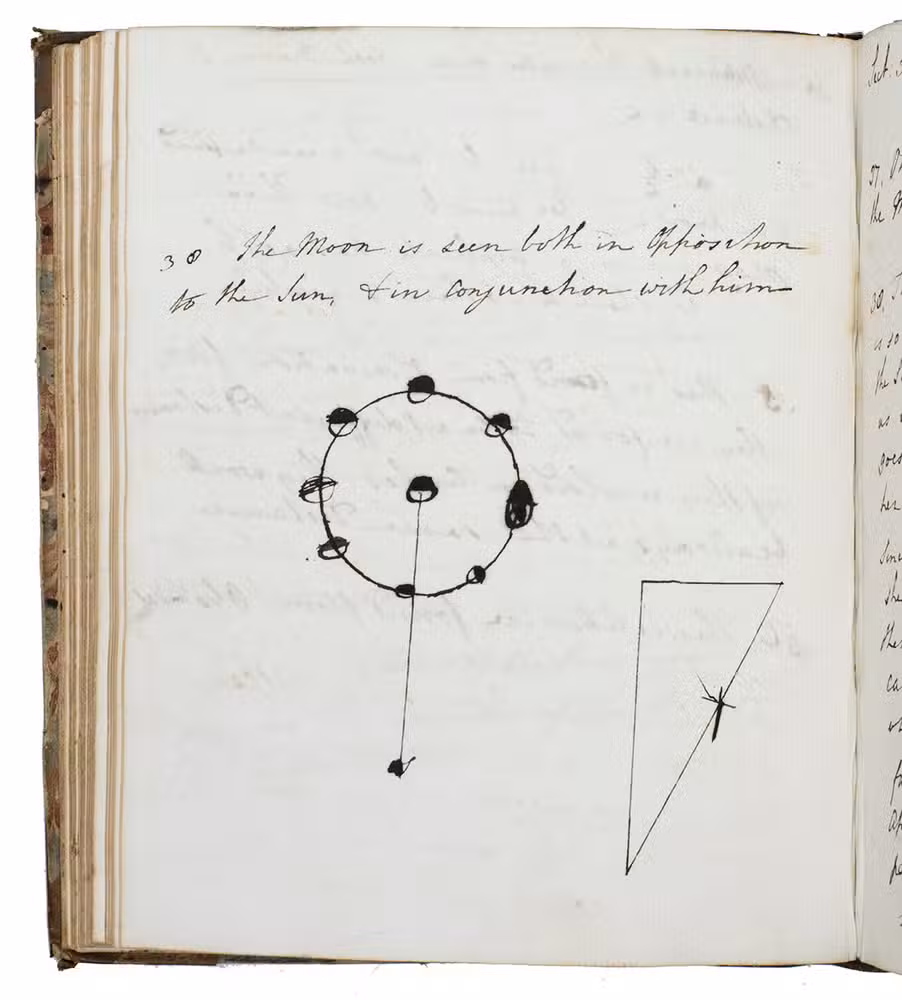 38 The Moon is seen both in Opposition
to the Sun, & in Conjunction with him
Sect. 3
37,
the M
38, T
is so
the S
as
goes
her
Since
she
the
ca